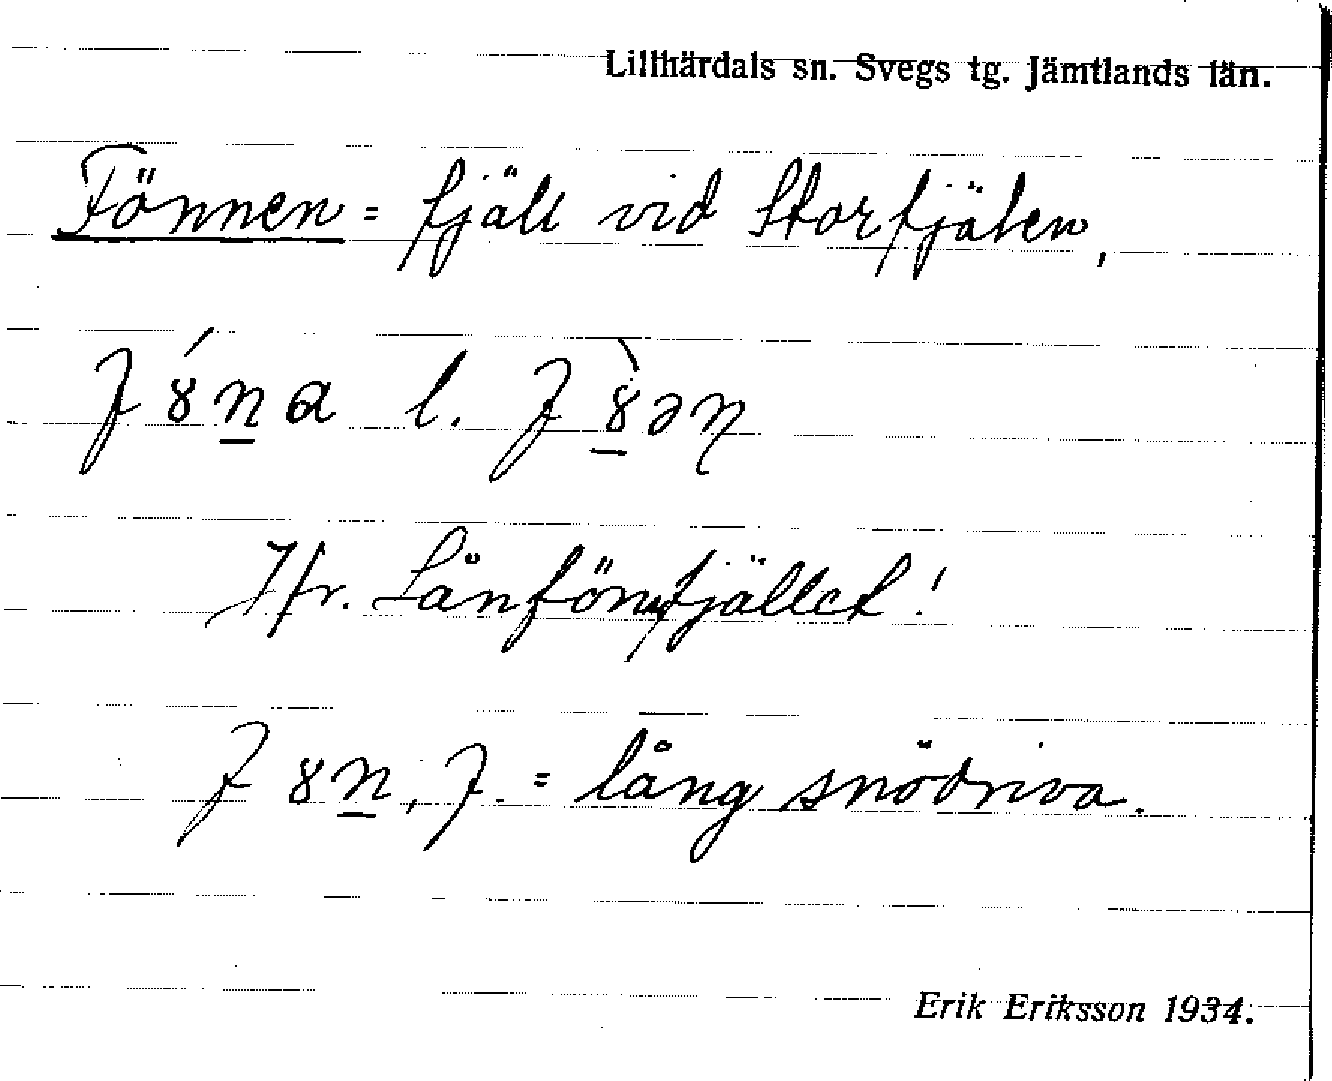 Lillhärdals sn. Svegs tg. Jämtlands län.
Fönnen = fjäll vid Storfjäten,
fɤ́n̲a l. fɤ̲̀əɳ
Jfr. Lånfönnfjället!
fɤn̲, f. = lång snödriva.
Erik Eriksson 1934.